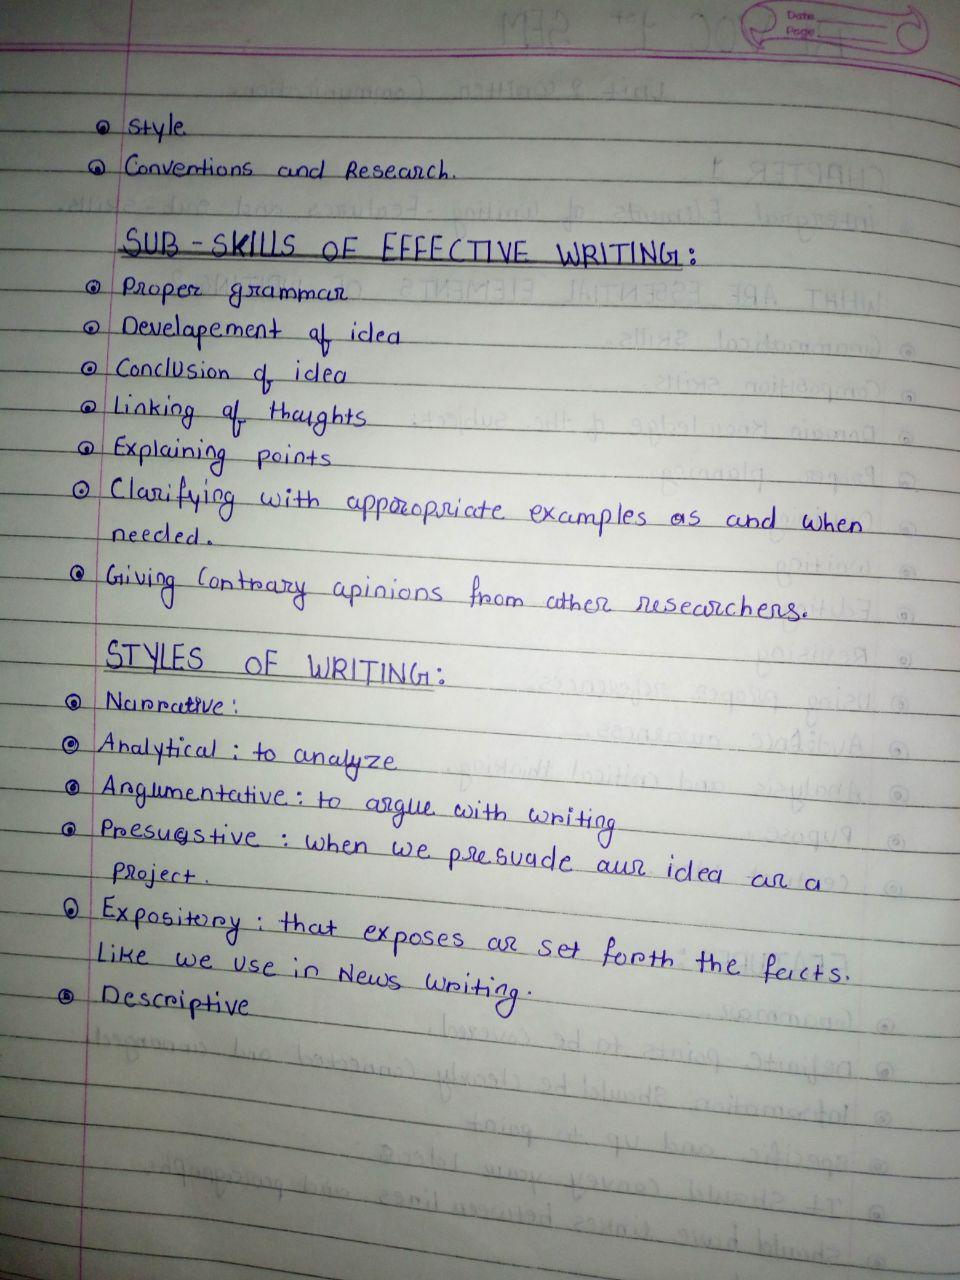 Date
Page
Style
Conventions and Research.
SUB-SKILLS OF EFFECTIVE WRITING:
Proper grammar
Develapement of idea
Conclusion of idea
Linking of thoughts
Explaining points
Clarifying with apporopriate examples as and when
needed.
Giving Contrary opinions from other researchers.
STYLES OF WRITING:
Narrative:
Analytical: to analyze
Argumentative: to argue with writing
Presuastive: when we presuade our idea or a
project.
Expository: that exposes or set forth the facts.
Like we use in News writing.
Descriptive